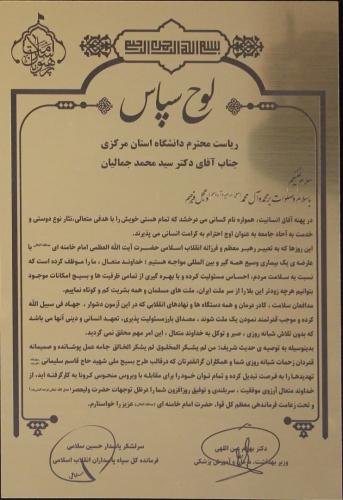 بسم الله الرحمن الرحیم
لوح سپاس
ریاست محترم دانشگاه استان مرکزی
جناب آقای دکتر سید محمد جمالیان
سلام علیکم
با سلام و صلوات بر محمد و آل محمد
در پهنه آقای انسانیت، همواره نام کسانی می درخشد که تمام هستی خویش را با هدفی متعالی،نثار نوع دوستی و
خدمت به آحاد جامعه به عنوان اوج احترام به کرامت انسانی می پذیرند.
این روزها که به تعبیر رهبر معظم و فرزانه انقلاب اسلامی حضرت آیت الله العظمی امام خامنه ای
عارضه ی یک بیماری وسیع همه گیر و بین المللی مواجه هستیم ؛ خداوند متعال ، ما را موظف کرده است که
نسبت به سلامت مردم، احساس مسئولیت کرده و با بهره گیری از تمامی ظرفیت ها و بسیج امکانات موجود
بتوانیم هرچه زودتر این بلا را از سر ملت ایران، ملت های مسلمان و همه بشریت کم و کوتاه نماییم.
مدافعان سلامت ، کادر درمان و همه دستگاه ها و نهادهای انقلابی که در این آزمون دشوار ، جهاد فی سبیل الله
کرده و موجب قدرتمند نمودن یک ملت شوند، مصداق بارز مسئولیت پذیری، تعهد انسانی و دینی آنها می باشد
که بدون تلاش شبانه روزی ، صبر و توکل به خداوند متعال ، این امر مهم محقق نمی گردید.
بدینوسیله به توصیه ی حدیث شریف: من لم یشکر المخلوق لم یشکر الخالق جامه عمل پوشانده و صمیمانه
قدردان زحمات شبانه روزی شما و همکاران گرانقدرتان که درقالب طرح بسیج ملی شهید حاج قاسم سلیمانی
تهدیدها را به فرصت تبدیل کرده و تمام توان خود را برای مقابله با ویروس منحوس کرونا به کارگرفته اید، از
خداوند متعال آرزوی موفقیت ، سربلندی و توفیق روزافزون شما را درظل توجهات حضرت ولیعصر
و تحت زعامت فرماندهی معظم کل قوا، حضرت امام خامنه ای عزیز را خواستارم.
سرلشکر پاسدار حسین سلامی
فرمانده کل سپاه پاسداران انقلاب اسلامی
دکتر بهرام عین اللهی
وزیر بهداشت، درمان و آموزش پزشکی